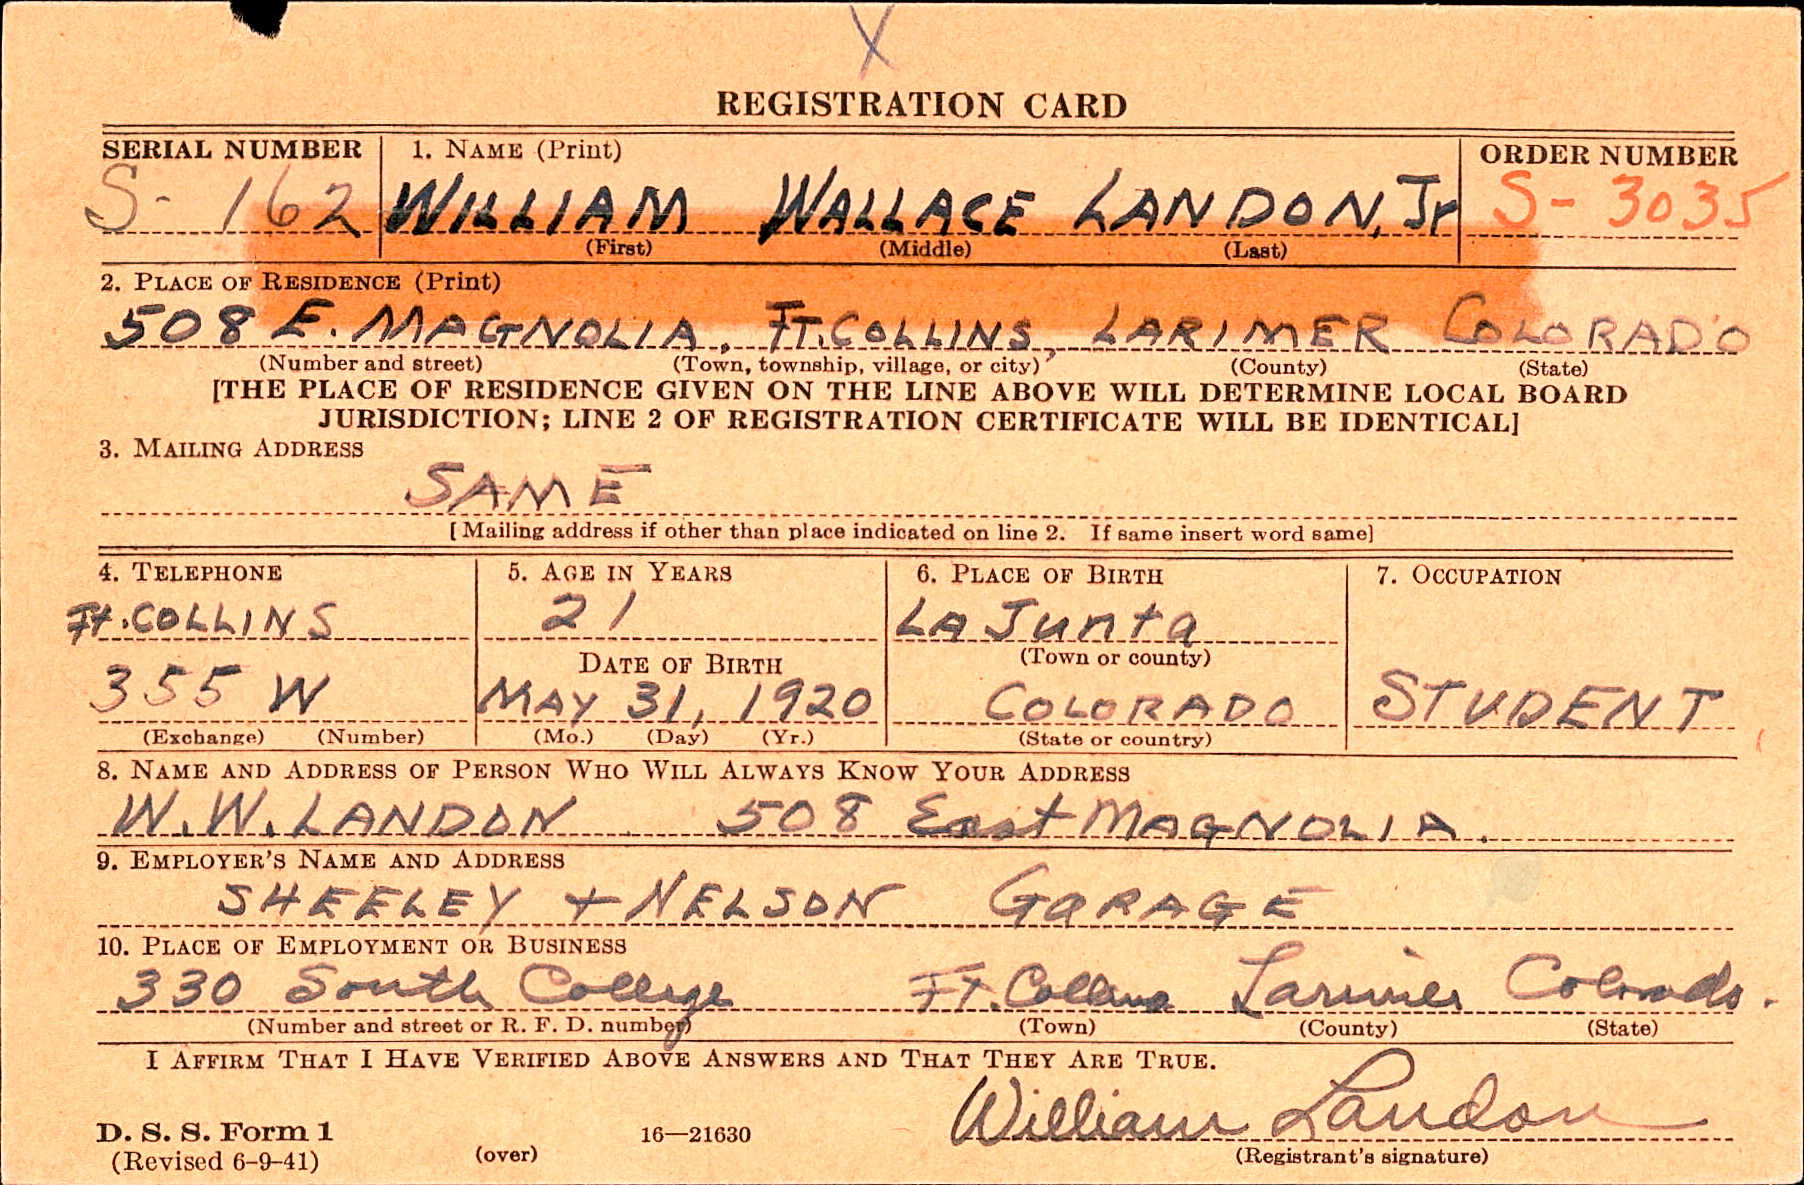 X
REGISTRATION CARD
SERIAL NUMBER 1. NAME (Print) ORDER NUMBER
S- 162 WILLIAM WALLACE LANDON, Jr S- 3035
(First) (Middle) (Last)
2. PLACE OF RESIDENCE (Print)
508 E. MAGNOLIA, FT. COLLINS, LARIMER COLORADO
(Number and street) (Town, township, village, or city) (County) (State)
[THE PLACE OF RESIDENCE GIVEN ON THE LINE ABOVE WILL DETERMINE LOCAL BOARD
JURISDICTION; LINE 2 OF REGISTRATION CERTIFICATE WILL BE IDENTICAL]
3. MAILING ADDRESS
SAME
[Mailing address if other than place indicated on line 2. If same insert word same]
4. TELEPHONE 5. AGE IN YEARS 6. PLACE OF BIRTH 7. OCCUPATION
Ft. COLLINS 21 LA Junta
DATE OF BIRTH (Town or county)
355 W MAY 31, 1920 COLORADO STUDENT
(Exchange) (Number) (Mo.) (Day) (Yr.) (State or country)
8. NAME AND ADDRESS OF PERSON WHO WILL ALWAYS KNOW YOUR ADDRESS
W. W. LANDON 508 East MAGNOLIA.
9. EMPLOYER'S NAME AND ADDRESS
SHEELEY + NELSON GARAGE
10. PLACE OF EMPLOYMENT OR BUSINESS
330 South College Ft. Collins Larimer Colorado.
(Number and street or R. F. D. number) (Town) (County) (State)
I AFFIRM THAT I HAVE VERIFIED ABOVE ANSWERS AND THAT THEY ARE TRUE.
William Landon
D. S. S. Form 1 16—21630
(Revised 6-9-41) (over) (Registrant's signature)